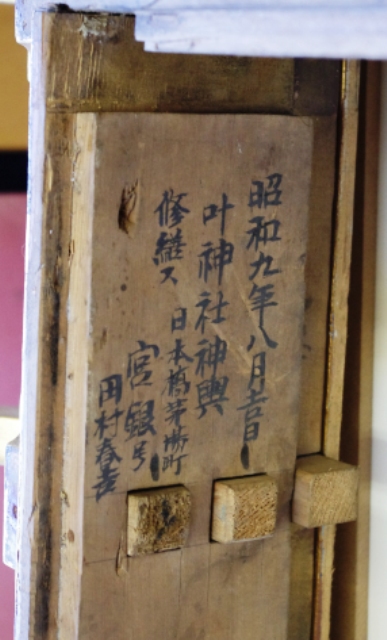 昭和九年八月吉日
叶神社神輿
修繕ス
日本橋茅場町
宮銀
村春吉